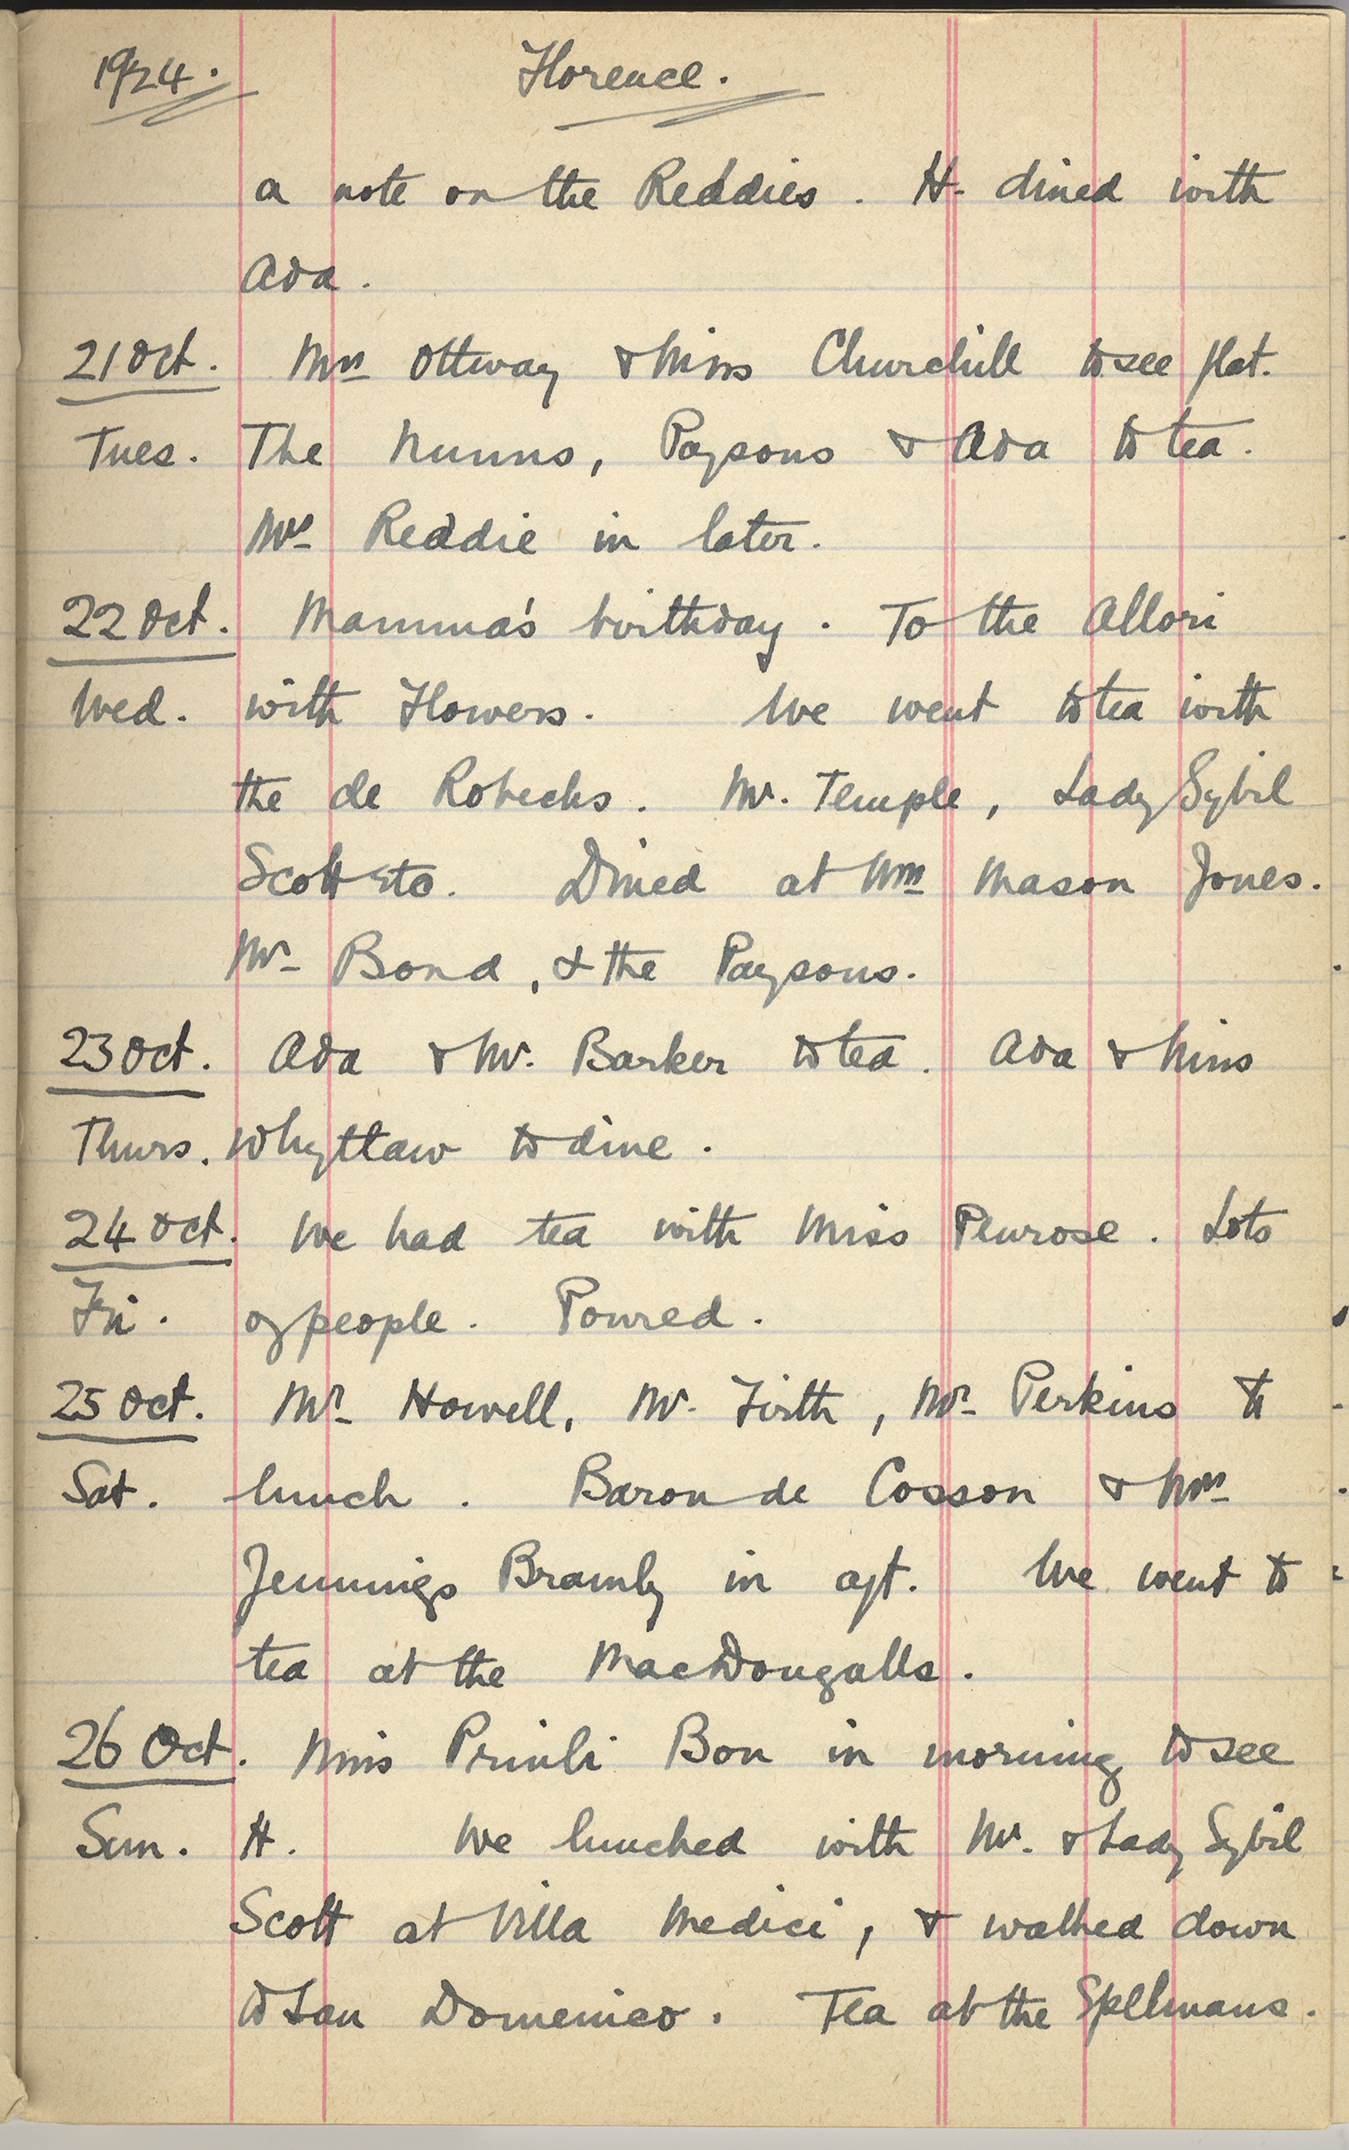 1924. Florence.
a note on the Reddies. H. dined with
Ada.
21 Oct. Mrs Ottway & Miss Churchill to see flat.
Tues. The Nunns, Paysons & Ada to tea.
Mrs Reddie in later.
22 Oct. Mamma's birthday. To the Allori
Wed. with Flowers. We went to tea with
the de Robecks. Mr. Temple, Lady Sybil
Scott etc. Dined at Mrs Mason Jones.
Mr Bond, & the Paysons.
23 Oct. Ada & Mr. Barker to tea. Ada & Miss
Thurs. Whyttaw to dine.
24 Oct. We had tea with Miss Penrose. Lots
Fri. of people. Poured.
25 Oct. Mr Howell, Mr. Firth, Mr Perkins to
Sat. lunch. Baron de Cosson & Mrs
Jennings Bramly in aft. We went to
tea at the MacDougalls.
26 Oct. Miss Priuli Bon in morning to see
Sun. H. We lunched with Mr. & Lady Sybil
Scott at Villa Medici, & walked down
to San Domenico. Tea at the Spelmans.